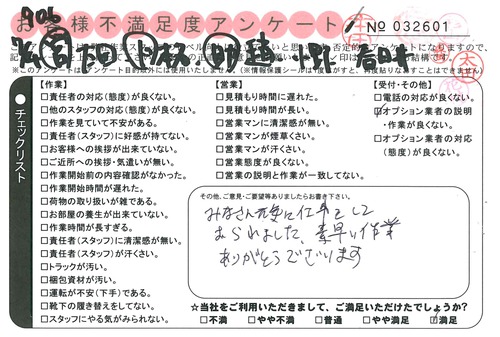 お客様不満足度アンケート
No 032601
チェックリスト
【作業】
□責任者の対応(態度)が良くない。
□他のスタッフの対応(態度)が良くない。
□作業を見ていて不安がある。
□責任者(スタッフ)に好感が持てない。
□お客様への挨拶が出来ていない。
□ご近所への挨拶・気遣いが無い。
□作業開始前の内容確認がなかった。
□作業開始時間が遅れた。
□荷物の取り扱いが雑である。
□お部屋の養生が出来ていない。
□作業時間が長すぎる。
□責任者(スタッフ)に清潔感が無い。
□責任者(スタッフ)が汗くさい。
□トラックが汚い。
□梱包資材が汚い。
□運転が不安(下手)である。
□靴下の履き替えをしてない。
□スタッフにやる気がみられない。
【営業】
□見積もり時間に遅れた。
□見積もり時間が長い。
□営業マンに清潔感が無い。
□営業マンが煙草くさい。
□営業マンが汗くさい。
□営業態度が良くない。
□営業の説明と作業が一致してない。
【受付・その他】
□電話の対応が良くない。
☑オプション業者の説明
・作業が良くない。
□オプション業者の対応
(態度)が良くない。
その他、ご意見・ご要望等ありましたらお書き下さい。
みなさん元気に仕事をして
おられました、素早い作業
ありがとうございます
☆当社をご利用いただきまして、ご満足いただけたでしょうか?
□不満 □やや不満 □普通 □やや満足 ☑満足